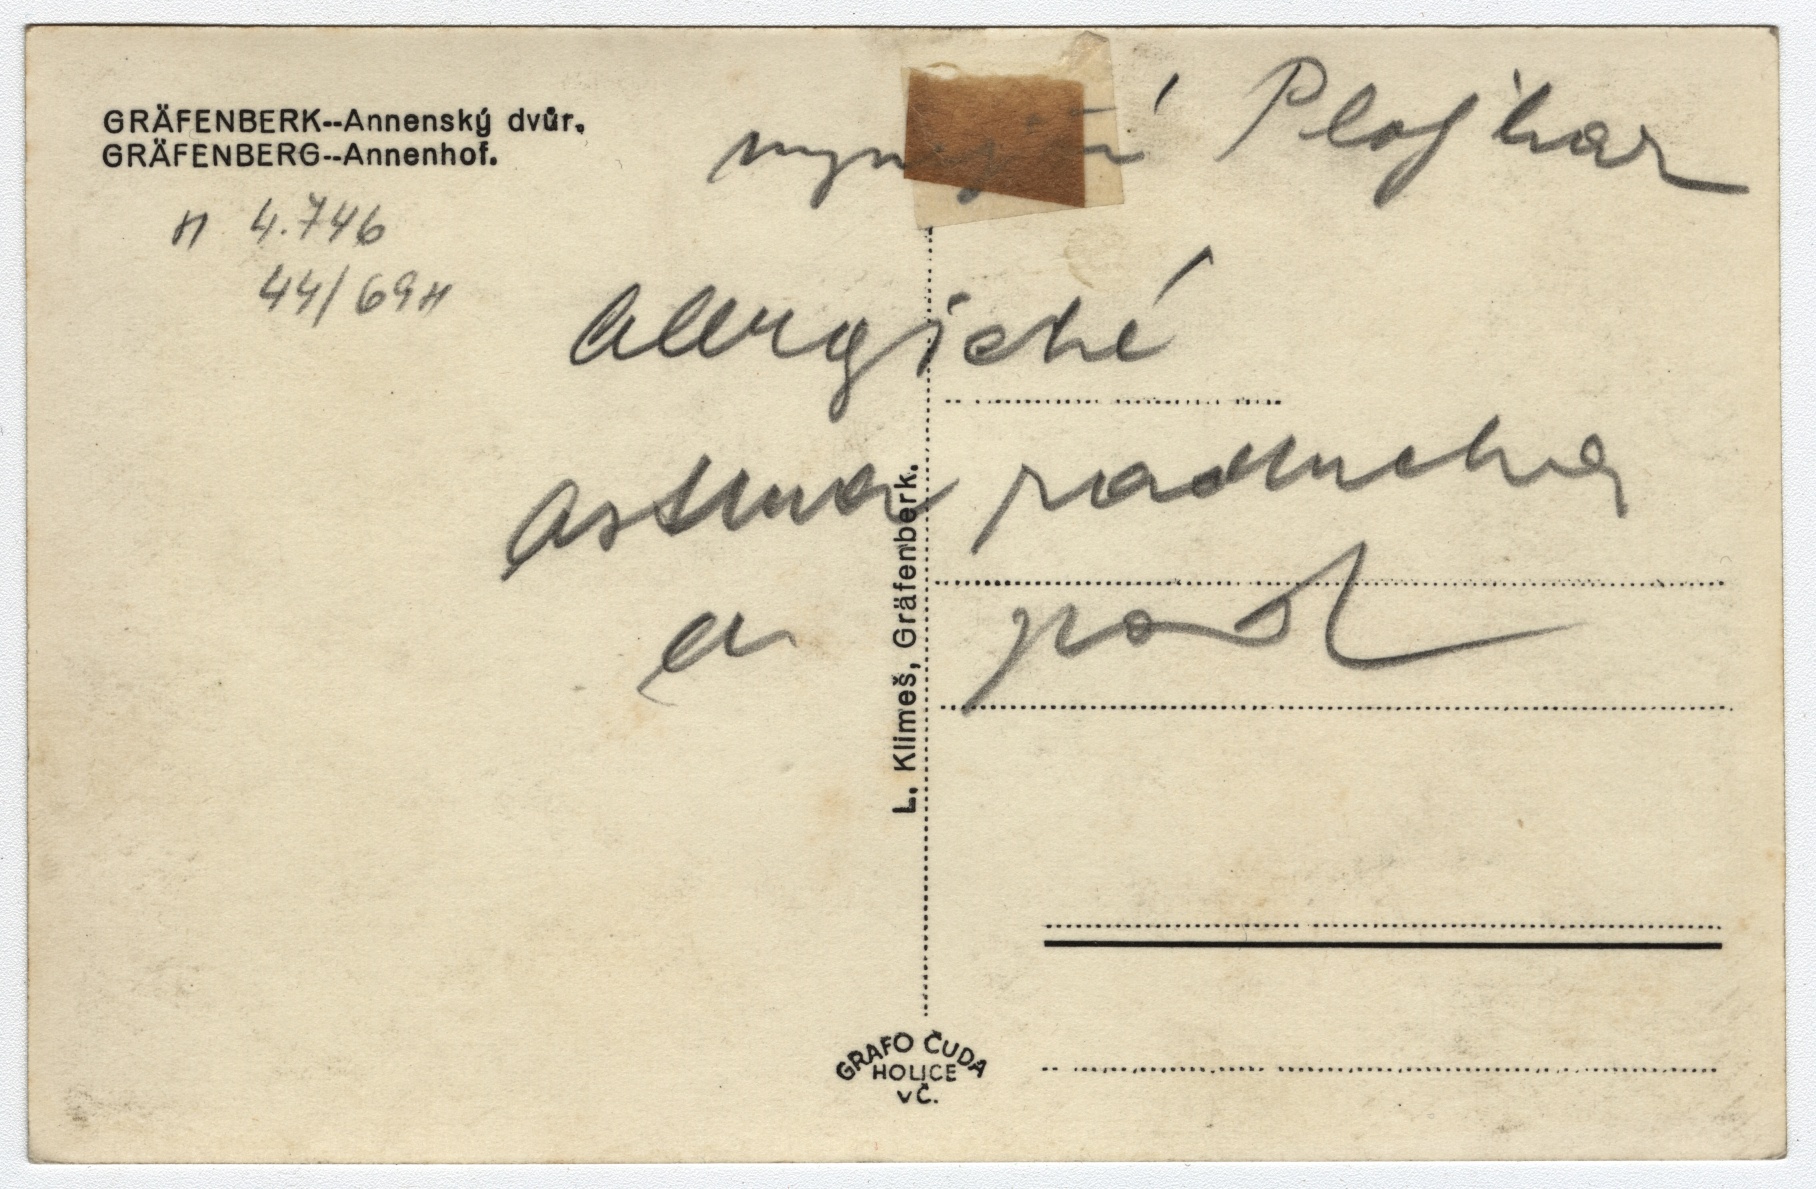 GRÄFENBERK--Annenský dvůr.
GRÄFENBERG--Annenhof.
n 4.746
44/69n
nynější Plojhar
Allergické
astma raducha
a pod
L. Klimeš, Gräfenberk.
GRAFO ČUDA
HOLICE
vČ.